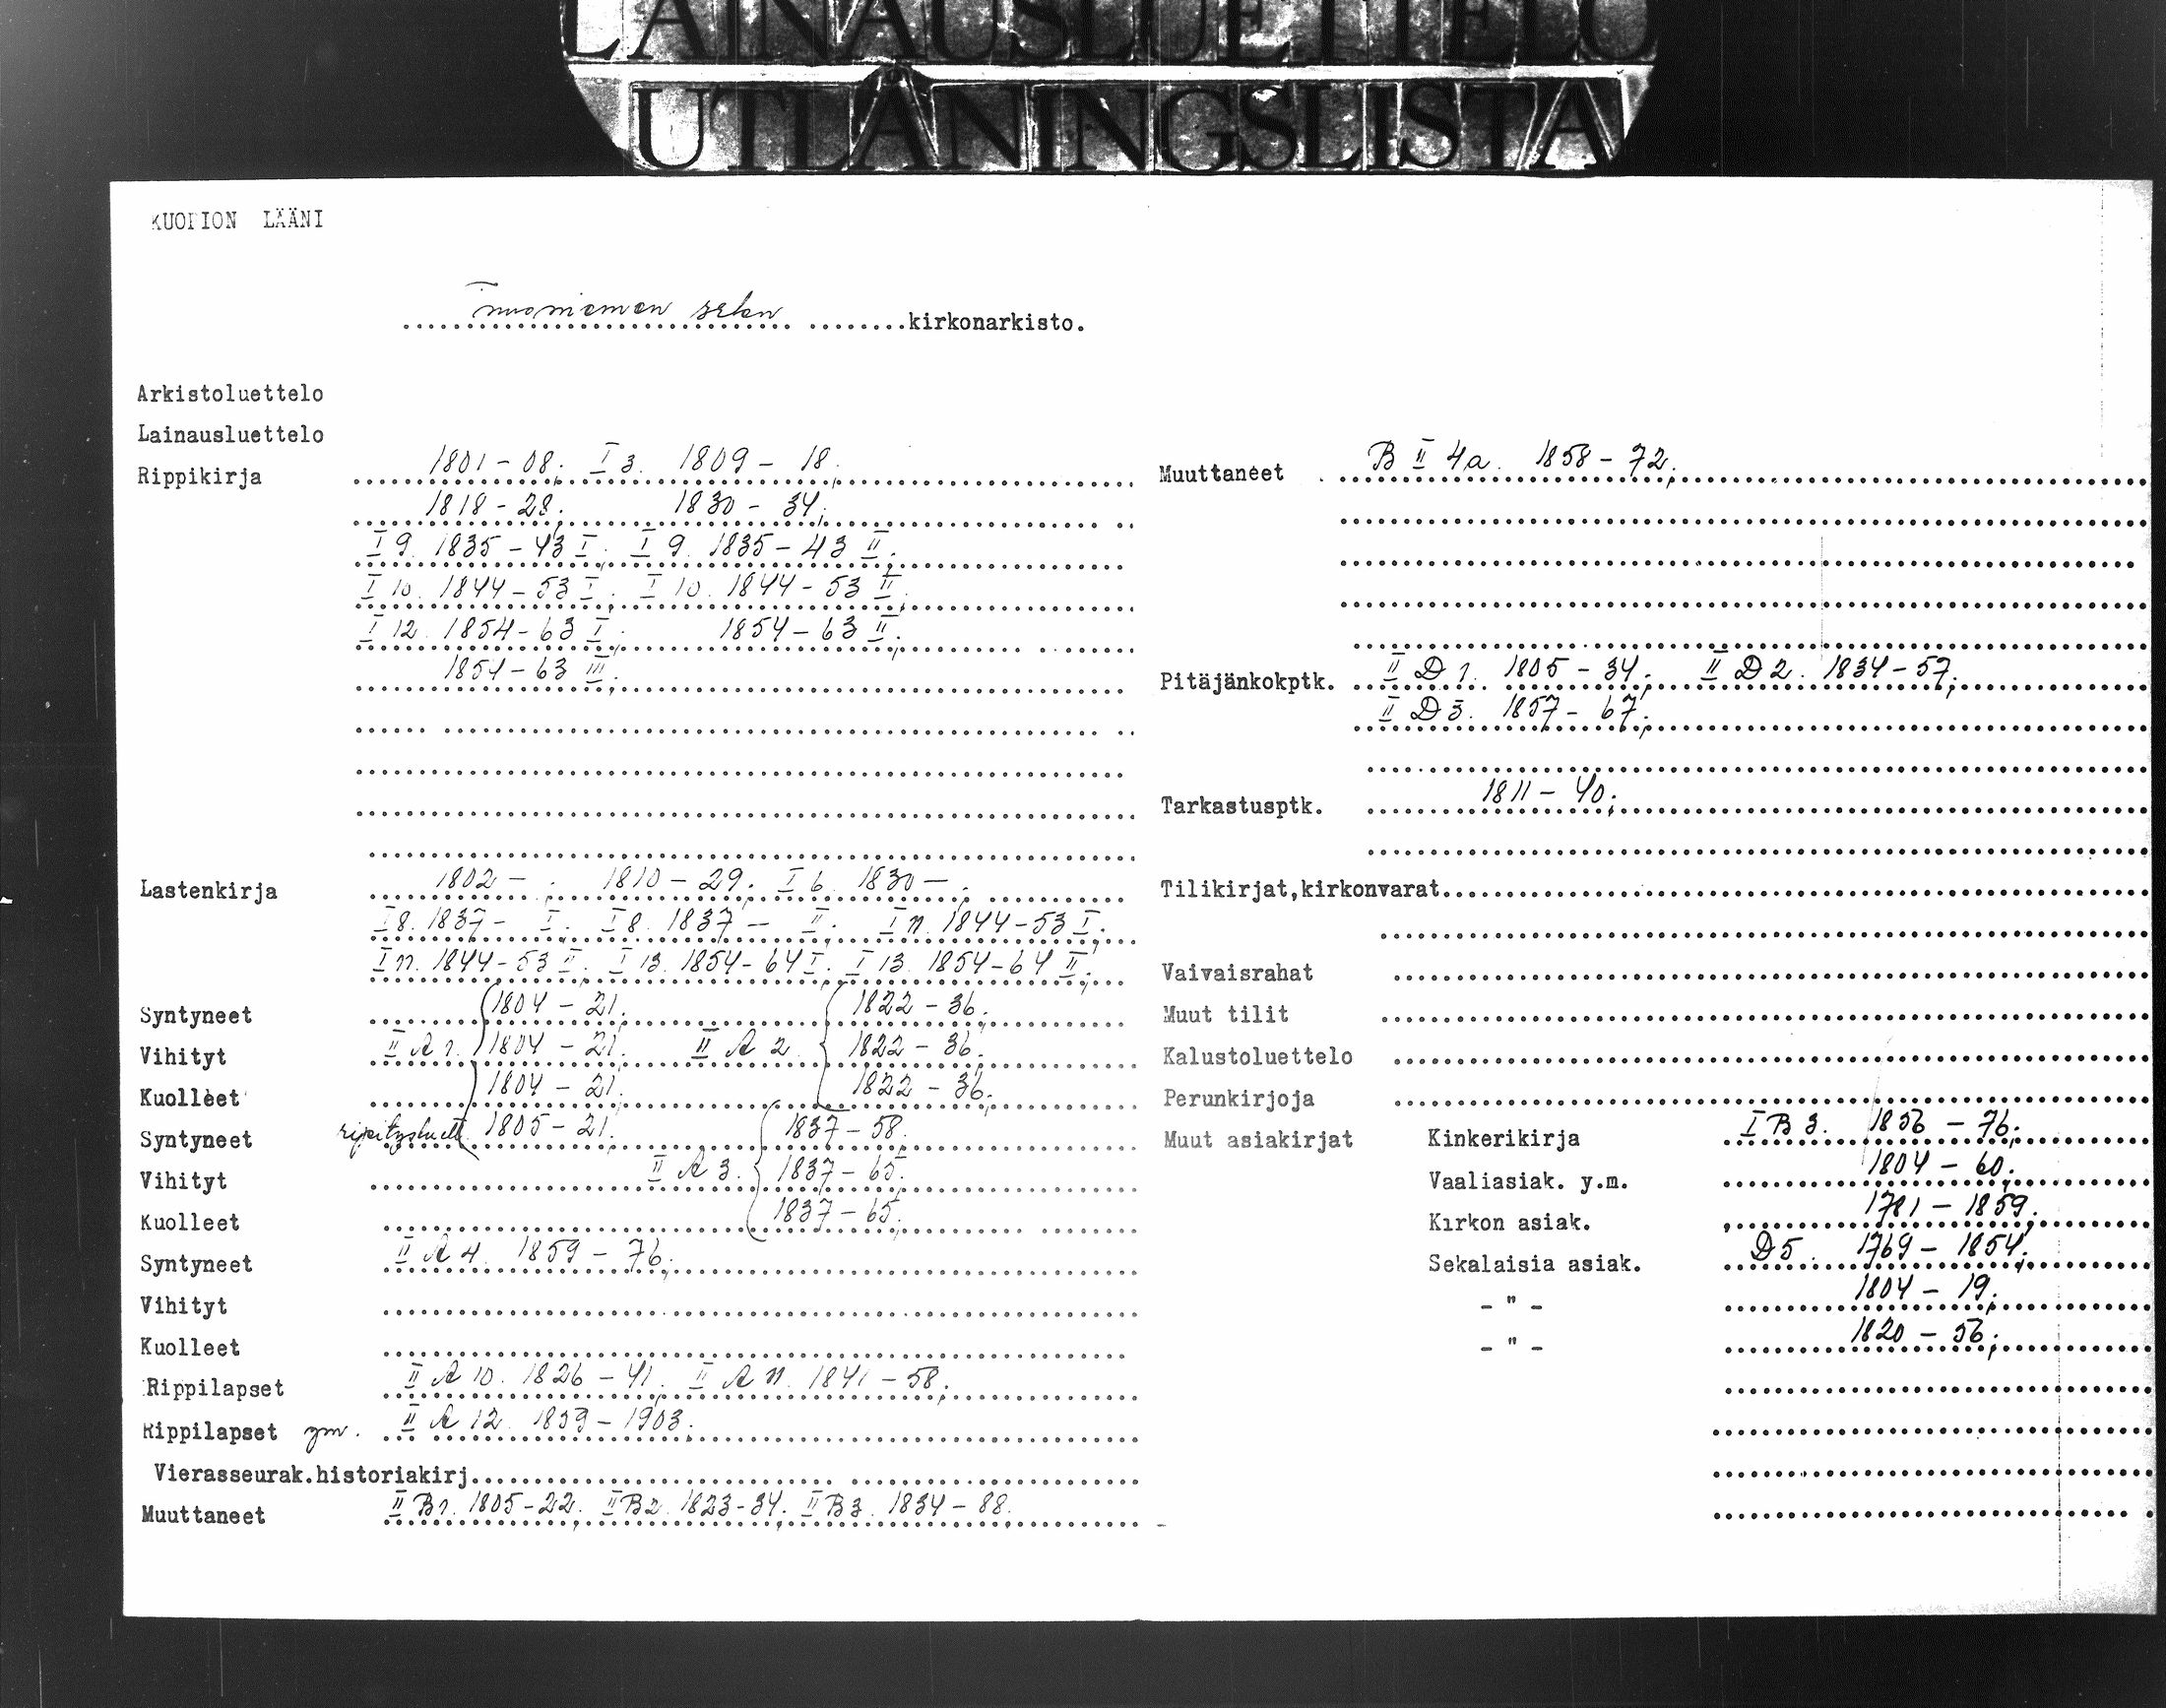 LAINAUSLUETTELO
UTLÅNINGSLISTA
KUOPION LÄÄNI
Tuusniemen srkn kirkonarkisto.
Arkistoluettelo
Lainausluettelo
Rippikirja 1801-08; I 3. 1809-18;
1818-28; 1830-34;
I 9. 1835-43 I; I 9. 1835-43 II;
I 10. 1844-53 I; I 10. 1844-53 II;
I 12. 1854-63 I; 1854-63 II;
1854-63 III;
Lastenkirja 1802- ; 1810-29; I 6. 1830- ;
I 8. 1837- I; I 8. 1837- II; I 11. 1844-53 I;
I 11. 1844-53 II; I 13. 1854-64 I; I 13. 1854-64 II;
Syntyneet 1804-21; 1822-36;
Vihityt II A 1. 1804-21; II A 2. 1822-36;
Kuolleet 1804-21; 1822-36;
Syntyneet ripityslueti 1805-21; 1837-58;
Vihityt II A 3. 1837-65;
Kuolleet 1837-65;
Syntyneet II A 4. 1859-76;
Vihityt
Kuolleet
Rippilapset II A 10. 1826-41; II A 11. 1841-58;
Rippilapset ym. II A 12. 1859-1903;
Vierasseurak.historiakirj.
Muuttaneet II B 1. 1805-22; II B 2. 1823-34; II B 3. 1834-88;
Muuttaneet B II 4a. 1858-72;
Pitäjänkokptk. II D 1. 1805-34; II D 2. 1834-57;
II D 3. 1857-67;
Tarkastusptk. 1811-40;
Tilikirjat,kirkonvarat
Vaivaisrahat
Muut tilit
Kalustoluettelo
Perunkirjoja
Muut asiakirjat Kinkerikirja I B 3. 1856-76;
Vaaliasiak. y.m. 1804-60;
Kirkon asiak. 1781-1859;
Sekalaisia asiak. D 5. 1769-1854;
- " - 1804-19;
- " - 1820-56;